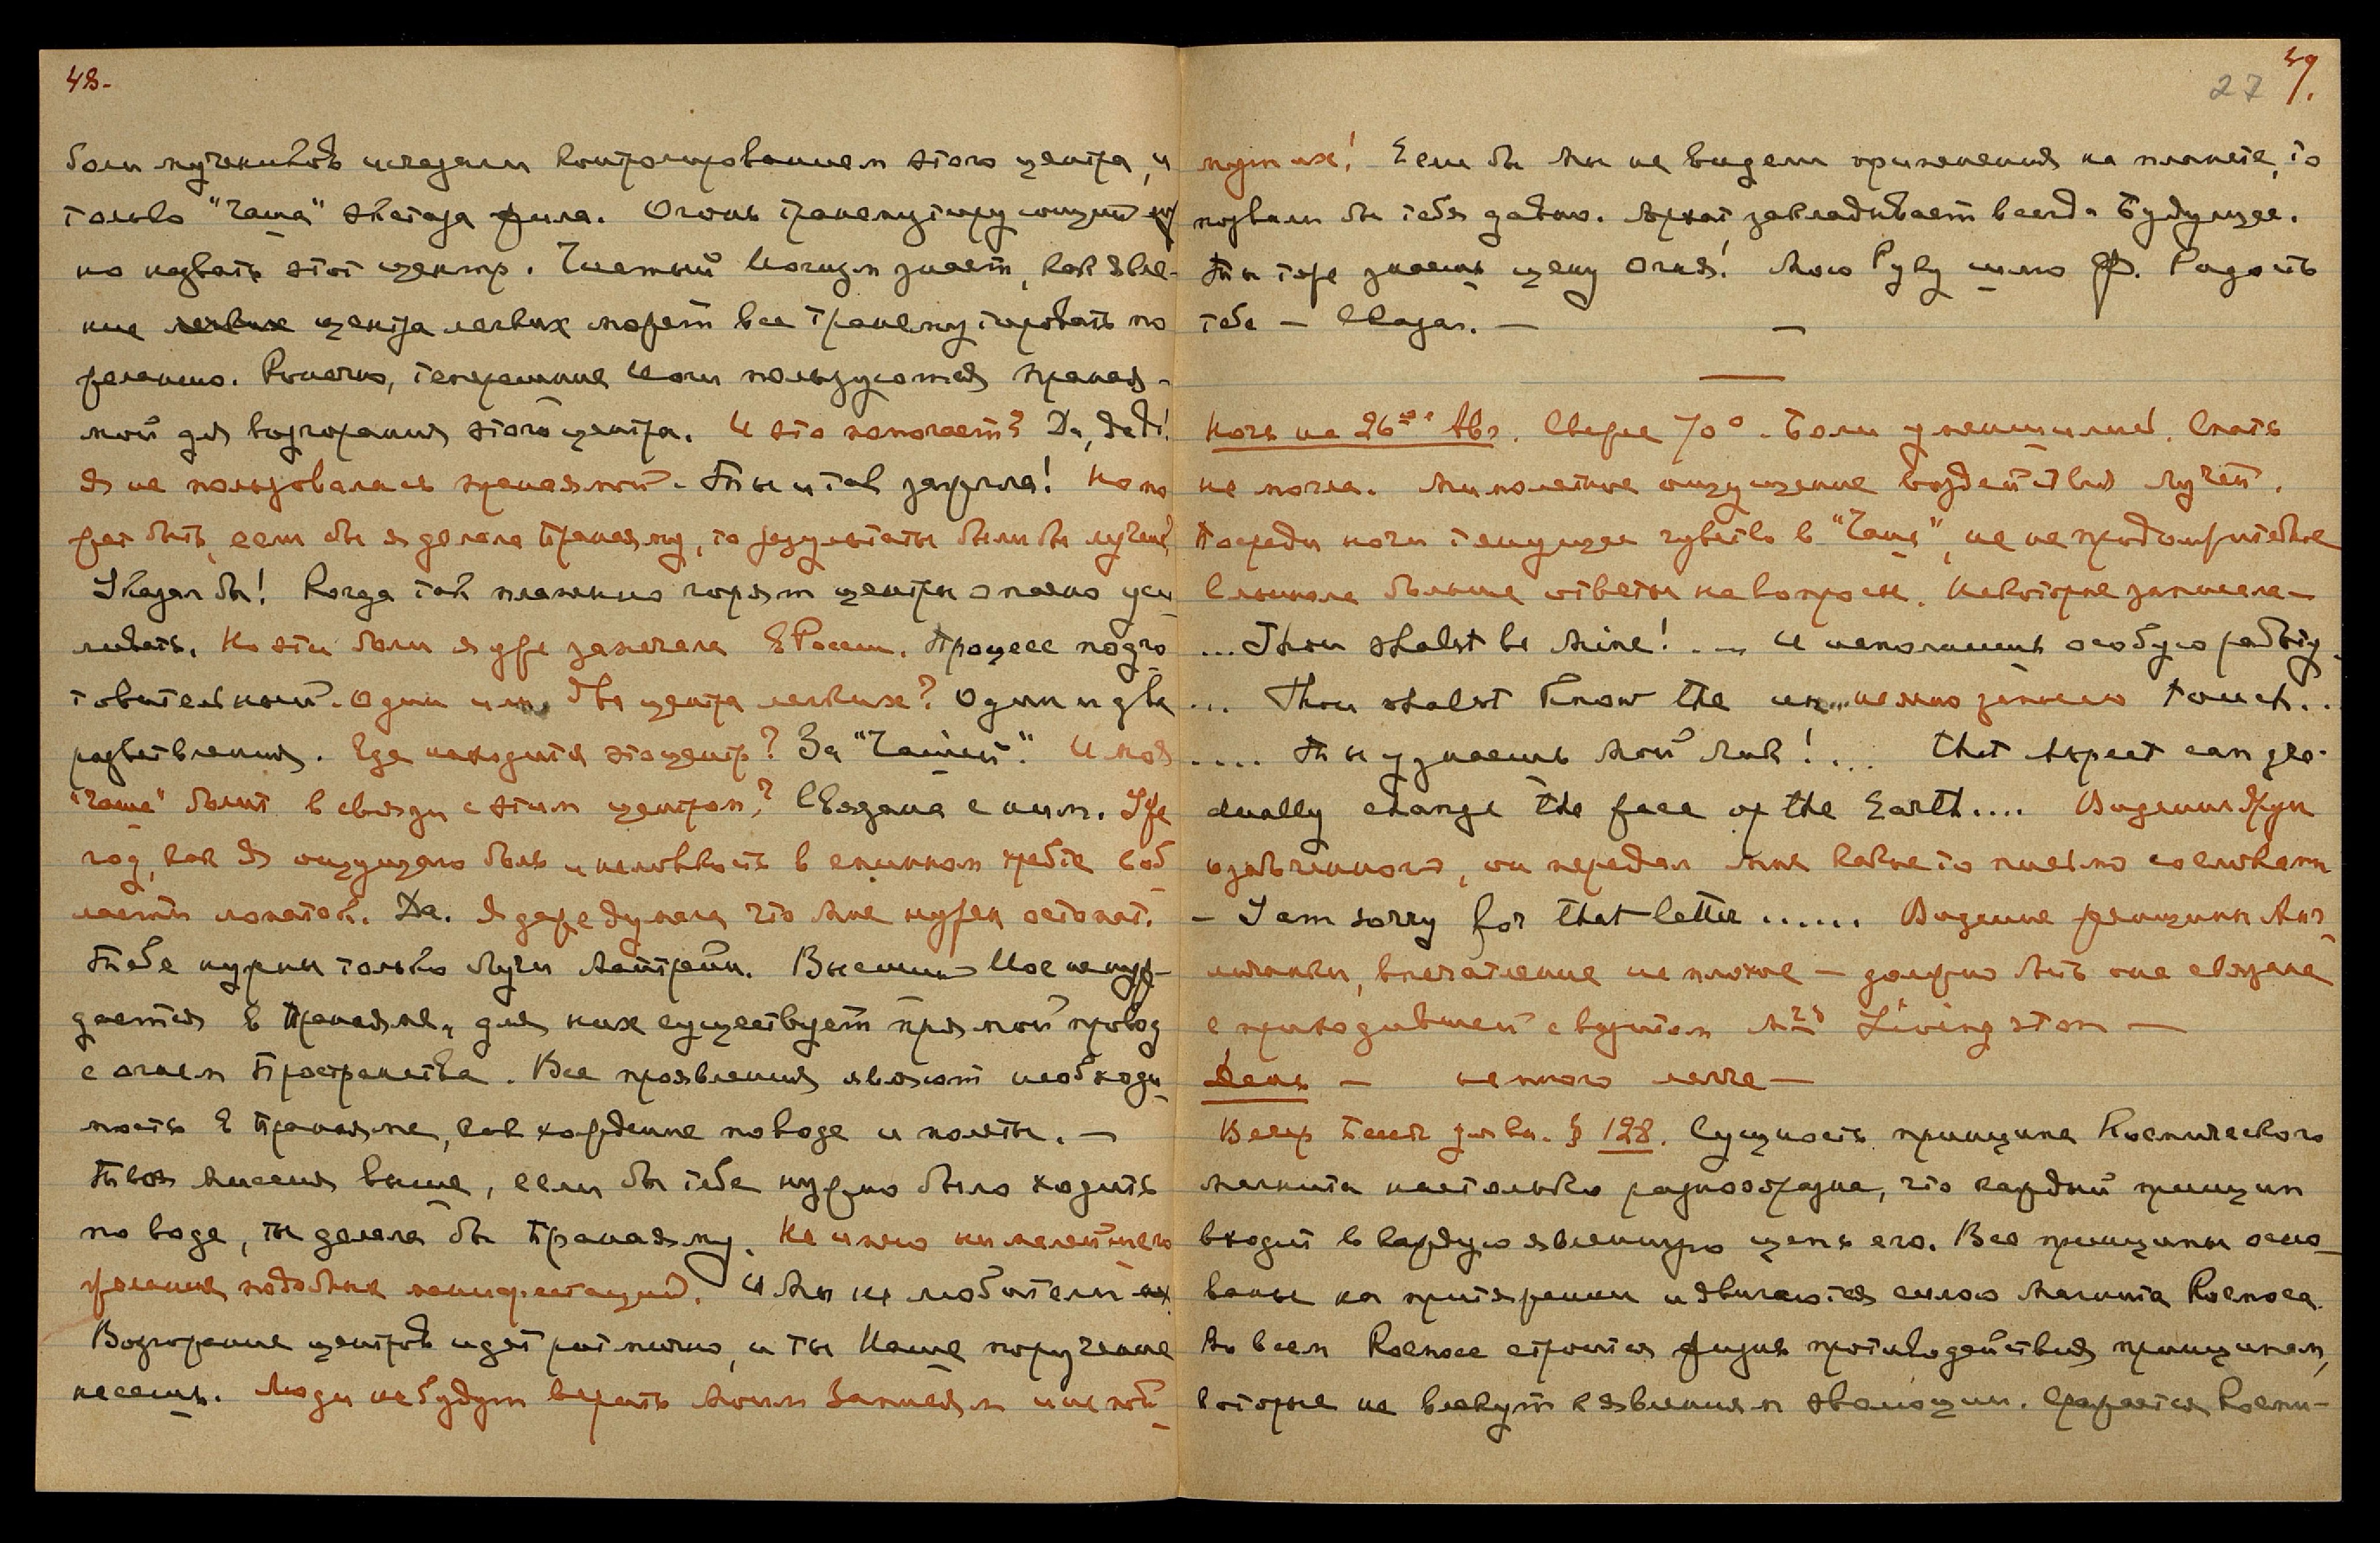 48-
боли мучеников исчезали контролированием этого центра, и
только "Чаша" экстаза жила. Огонь трансмутирующий мож
но назвать этот центр. Истинный Йогизм знает, как явле-
ние центра легких может все трансмутировать по
желанию. Конечно, теперешние Йоги пользуются праная-
мой для возгорания этого центра. И это помогает? Да, да!
Я не пользовалась пранаямой. Ты и так зажгла! Но мо
жет быть, если бы я делала Пранаяму, то результаты были бы лучше?
Указал бы! Когда так пламенно горят центры опасно уси
ливать. Но эти боли я уже замечала в России. Процесс подго
товительный. Один или два центра легких? Один и два
разветвления. Где находится этот центр? За "Чашей". И моя
"Чаша" болит в связи с этим центром? Связана с ним. Уже
год, как я ощущаю боль и неловкость в спинном хребте в об
ласти лопаток. Да. Я даже думала что мне нужен остеопат.
Тебе нужны только Лучи Матрейи. Высший Йог не нуж-
дается в Пранаяме, для них существует прямой провод
с огнем Пространства. Все проявления являют необходи
мость в Пранаяме, как хождение по воде и полеты. —
Твоя Миссия выше, если бы тебе нужно было ходить
по воде, ты делала бы Пранаяму. Не имею ни малейшего
желания подобных манифестаций. И Мы не любители их.
Возгорание центров идет ритмично, и ты Наше поручение
несешь. Люди не будут верить Моим Записям и не пой
27 49.
мут их! Если бы Мы не видели применения на планете, то
позвали бы тебя давно. Архат закладывает всегда Будущее.
Ты тоже знаешь цену Огня! Мою Руку шлю Ф. Радость
тебе — Сказал. — —
Ночь на 26ое Авг. Свыше 70°. Боли уменьшились. Спать
не могла. Мимолетное ощущение воздействия Лучей.
Посреди ночи тянущее чувство в "Чаше", не непродолжительное
Слышала больше ответы на вопросы. Некоторые записала —
... Thou shalst be Mine! ... И исполнишь особую работу.
... Thou shalst know the не ясно записано touch..
.... Ты узнаешь Мой Лик! ... that Aspect can gra-
dually change the face of the Earth.... Видения
он передал мне какое то письмо со словами
— I am sorry for that letter ...... Видение женщины Анг
личанки, впечатление не плохое — должно быть она связана
с приходившей с визитом Mrs Livingston —
День — немного легче —
Вечер § 128. Сущность принципа Космического
Магнита настолько разнообразна, что каждый принцип
входит в каждую явленную цепь его. Все принципы осно
ваны на притяжении и двигаются силою Магнита Космоса.
Во всем Космосе строится жизнь противодействия принципам,
которые не влекут к явлениям эволюции. Сражается Косми-